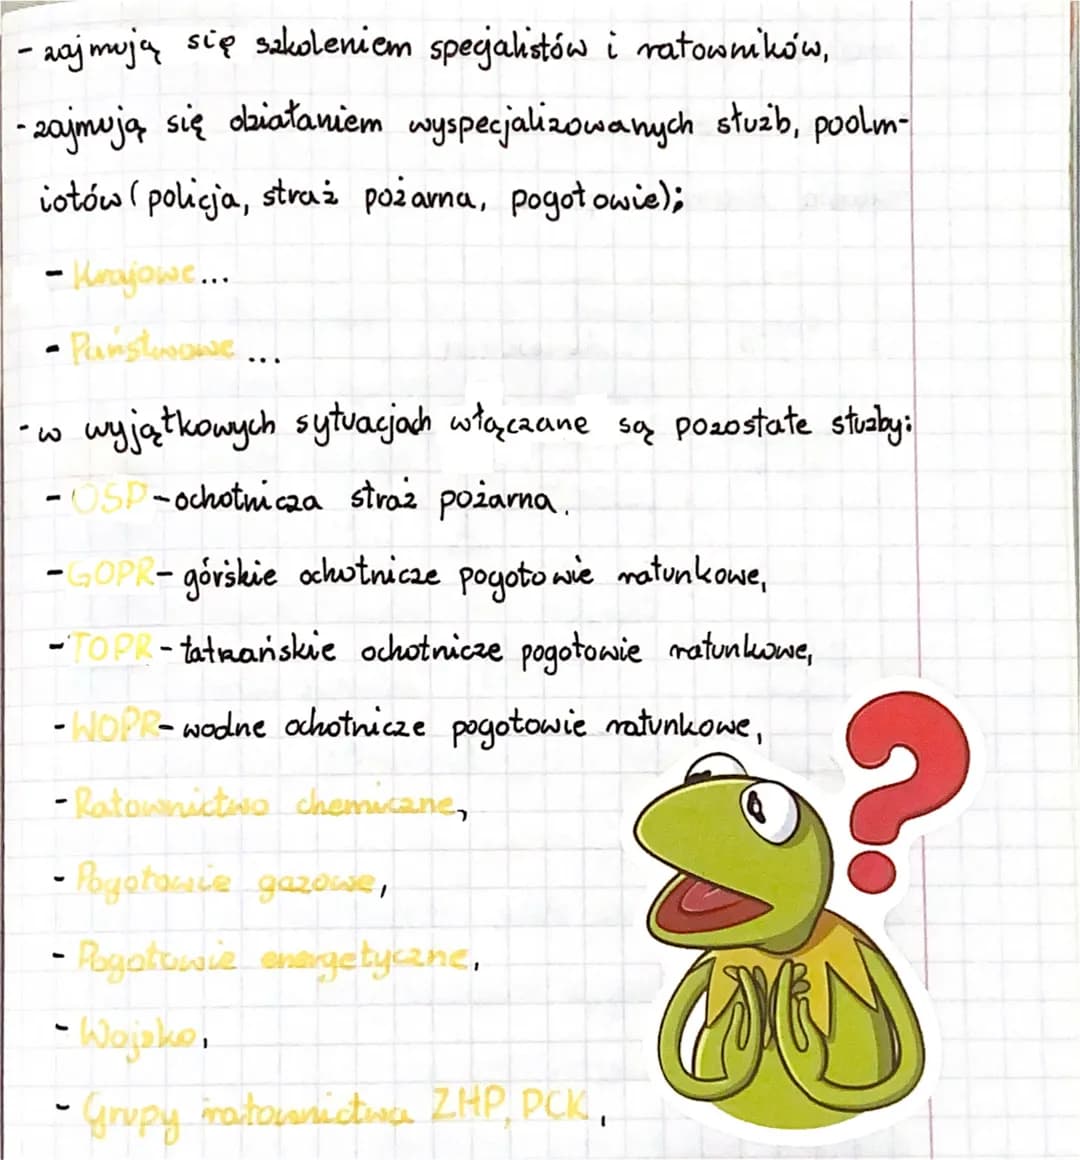 - zajmują się szkoleniem specjalistów i ratowników,
- zajmują się działaniem wyspecjalizowanych służb, podm-
iotów (policja, straż pożarna, pogotowie);
- Krajowe...
- Państwowe...
- w wyjątkowych sytuacjach włączane są pozostałe służby:
- OSP - ochotnicza straż pożarna.
- GOPR - górskie ochotnicze pogotowie ratunkowe,
- TOPR - tatrzańskie ochotnicze pogotowie ratunkowe,
- WOPR - wodne ochotnicze pogotowie ratunkowe,
- Ratownictwo chemiczne,
- Pogotowie gazowe,
- Pogotowie energetyczne,
- Wojsko,
- Grupy ratownictwa ZHP, PCK,